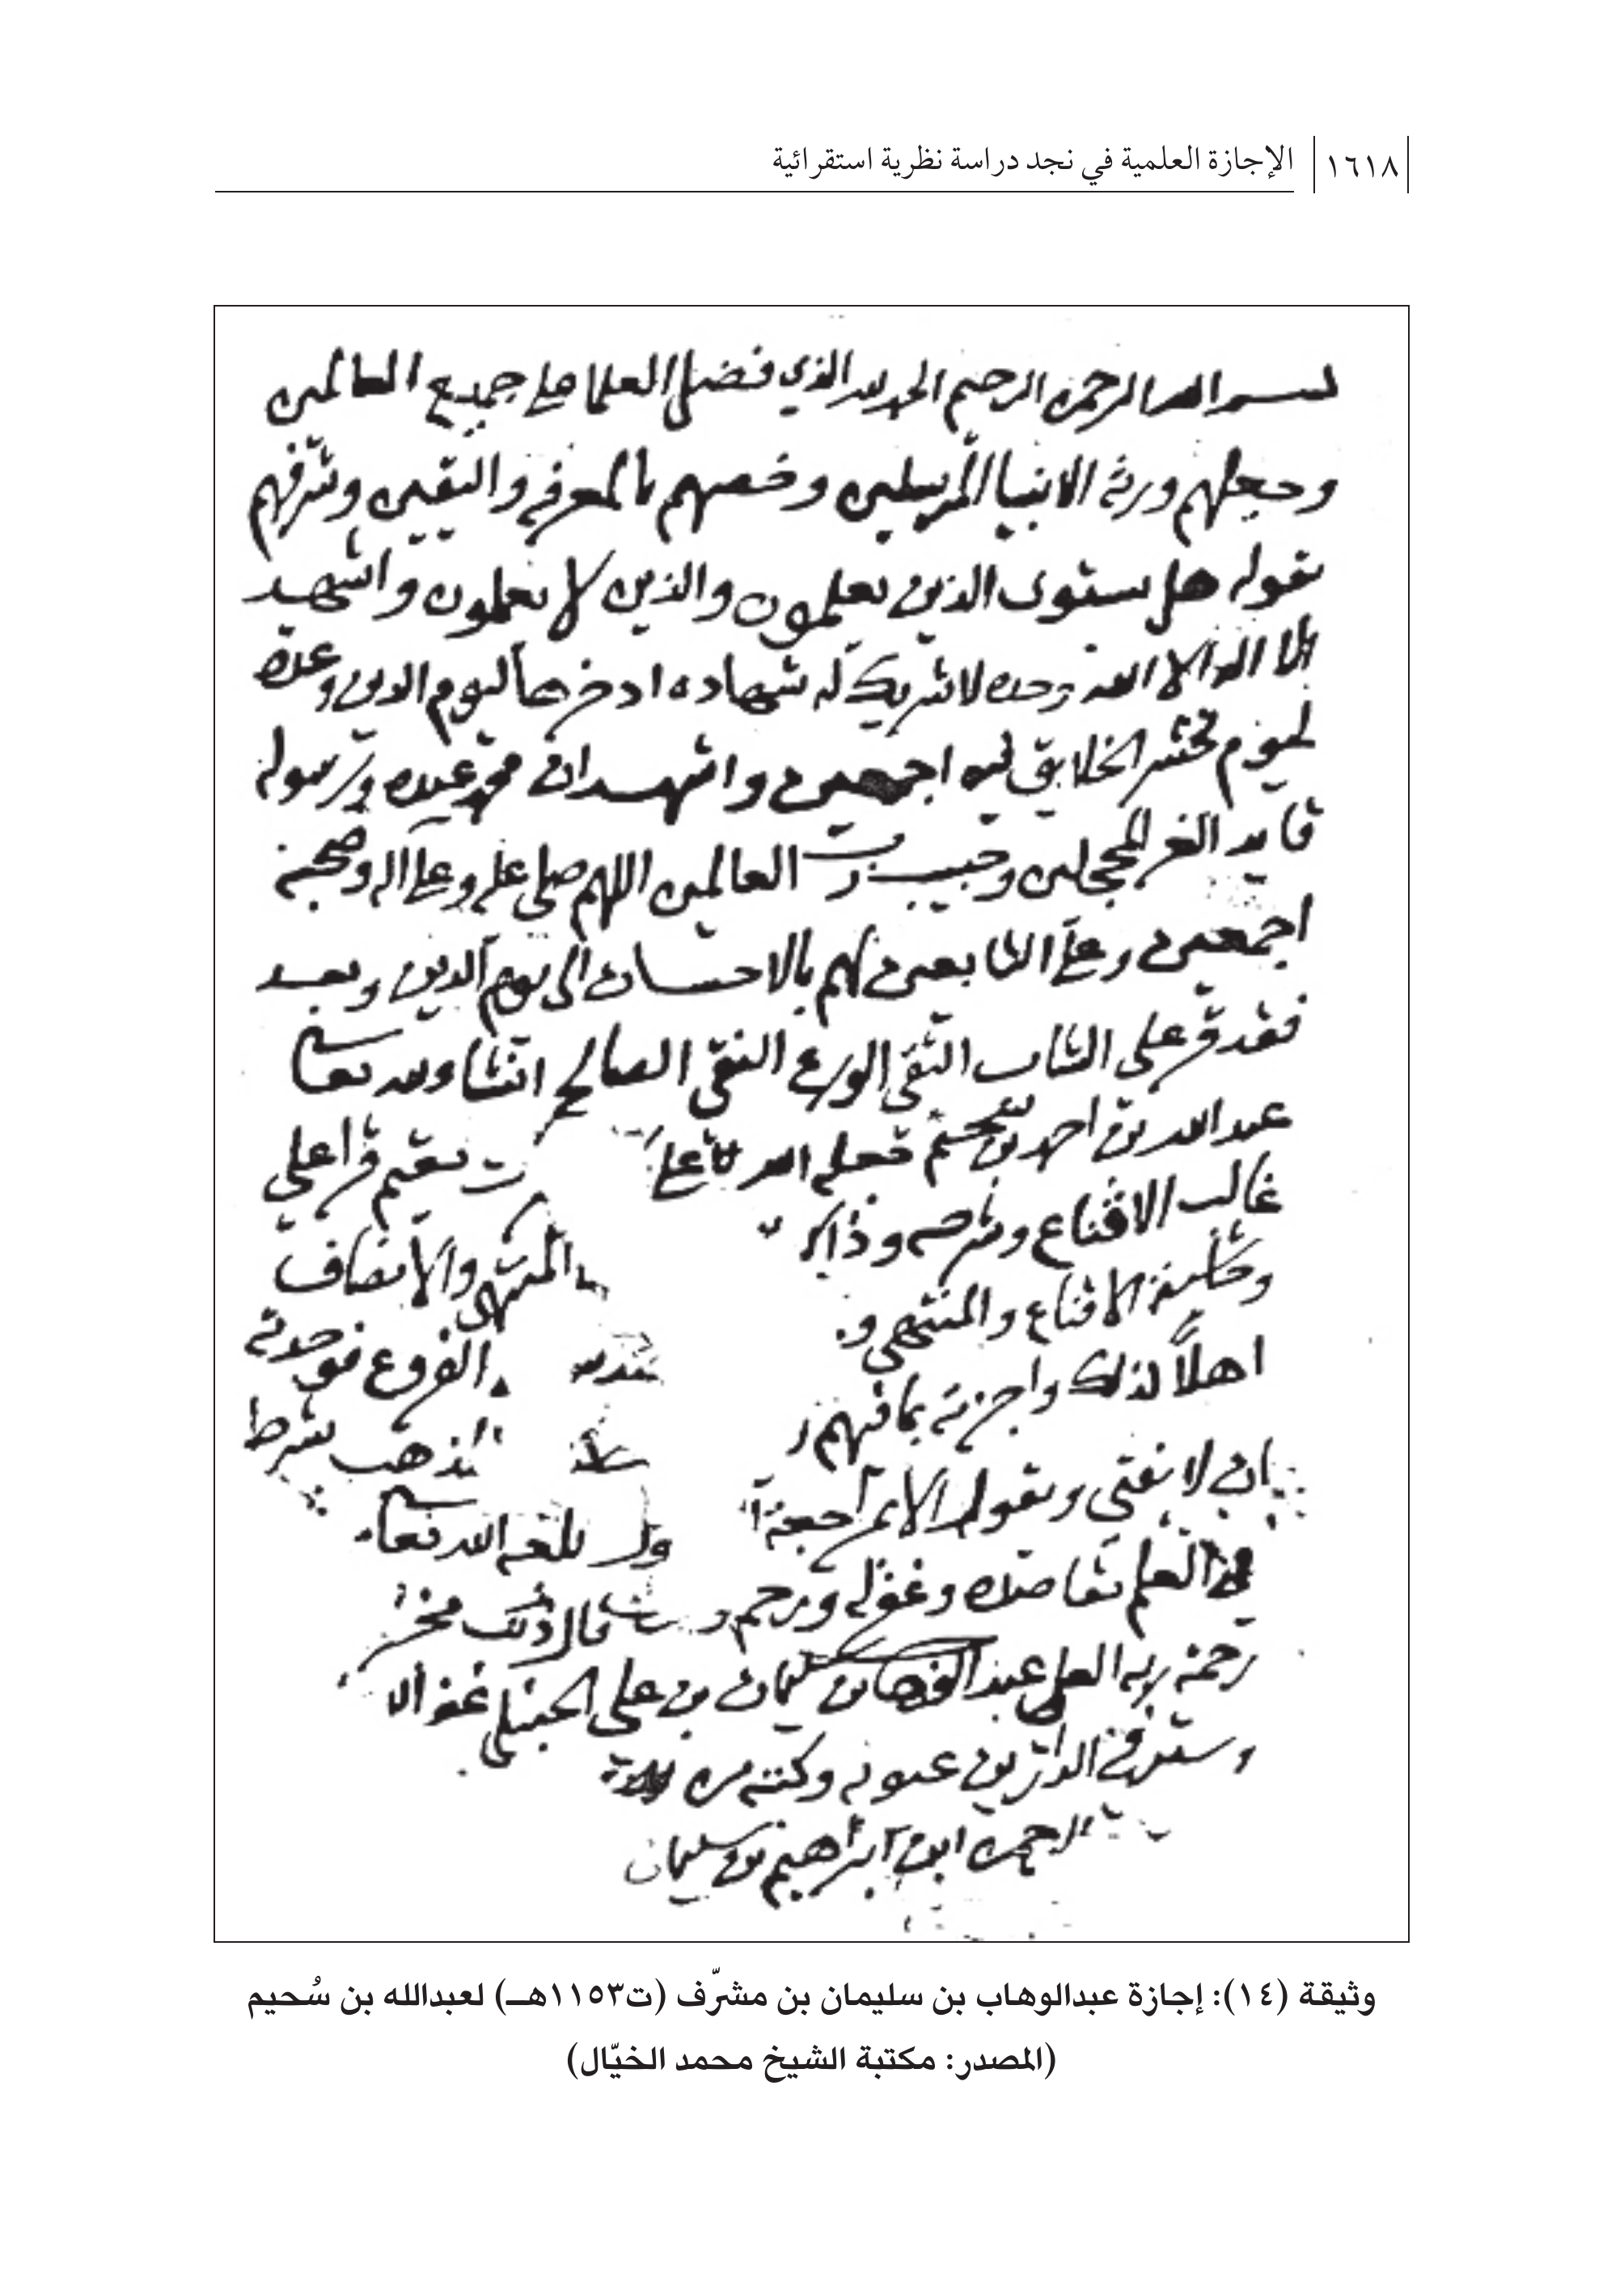 ١٦١٨ الإجازة العلمية في نجد دراسة نظرية استقرائية
بسم الله الرحمن الرحيم الحمد لله الذي فضل العلما على جميع العالمين
وجعلهم ورثة الانبيا المرسلين وخصهم بالمعرفة واليقين وشرفهم
بقوله هل يستوى الذين يعلمون والذين لا يعلمون واشهد
ان لا اله الا الله وحده لا شريك له شهاده ادخرها ليوم الدين وعدة
ليوم تحشر الخلايق فيه اجمعين واشهد ان محمد عبده ورسوله
قايد الغر المحجلين وحبيب رب العالمين اللهم صلي عليه وعلى اله وصحبه
اجمعين وعلى التابعين لهم بالاحسان الى يوم الدين وبعد
فقد قرء على الشاب التقي الورع النقي الصالح انشاء الله تعالى
عبد الله بن احمد بن سحيم فعلمه الله تعالى قرا على
غالب الاقناع وشرحه وذاكر المنتهى والانصاف
وحاشية الاقناع والمنتهى و الفروع فوجدته
اهلاً لذلك واجزته بما فهم المذهب بشرط
ان لا يفتي ويقول الا بمراجعة بلغه الله تعالى
في العلم مقاصده وغفر له ورحم قال ذلك
رحمة ربه العلي عبد الوهاب بن سليمان بن علي الحنبلي غفر الله
وستر في الدارين عيوبه وكتبه من
الرحمن ابن ابراهيم بن سليمان
وثيقة (١٤): إجازة عبدالوهاب بن سليمان بن مشرّف (ت١١٥٣هـ) لعبدالله بن سُحيم
(المصدر: مكتبة الشيخ محمد الخيّال)